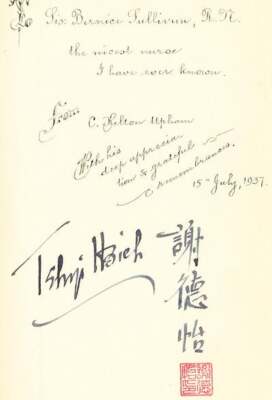 Six Bernice Sullivan, R.N.
the nicest nurse
I have ever known.
From
C. Hilton Upham
With his
deep apprecia
tion & grateful
remembrances.
15th July, 1937.
Hsieh
謝德怡